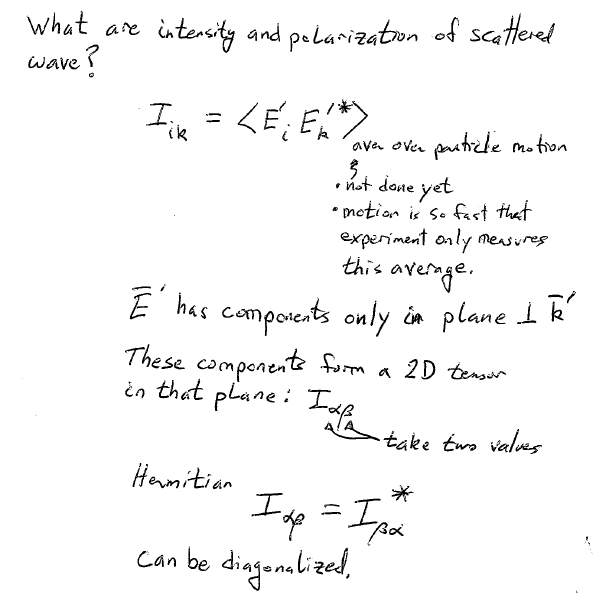 What are intensity and polarization of scattered
wave?
I_ik = <E'_i E'_k*>
aver over particle motion
• not done yet
• motion is so fast that
experiment only measures
this average.
E̅' has components only in plane ⊥ k̅'
These components form a 2D tensor
in that plane: I_αβ
take two values
Hermitian
I_αβ = I_βα*
Can be diagonalized,